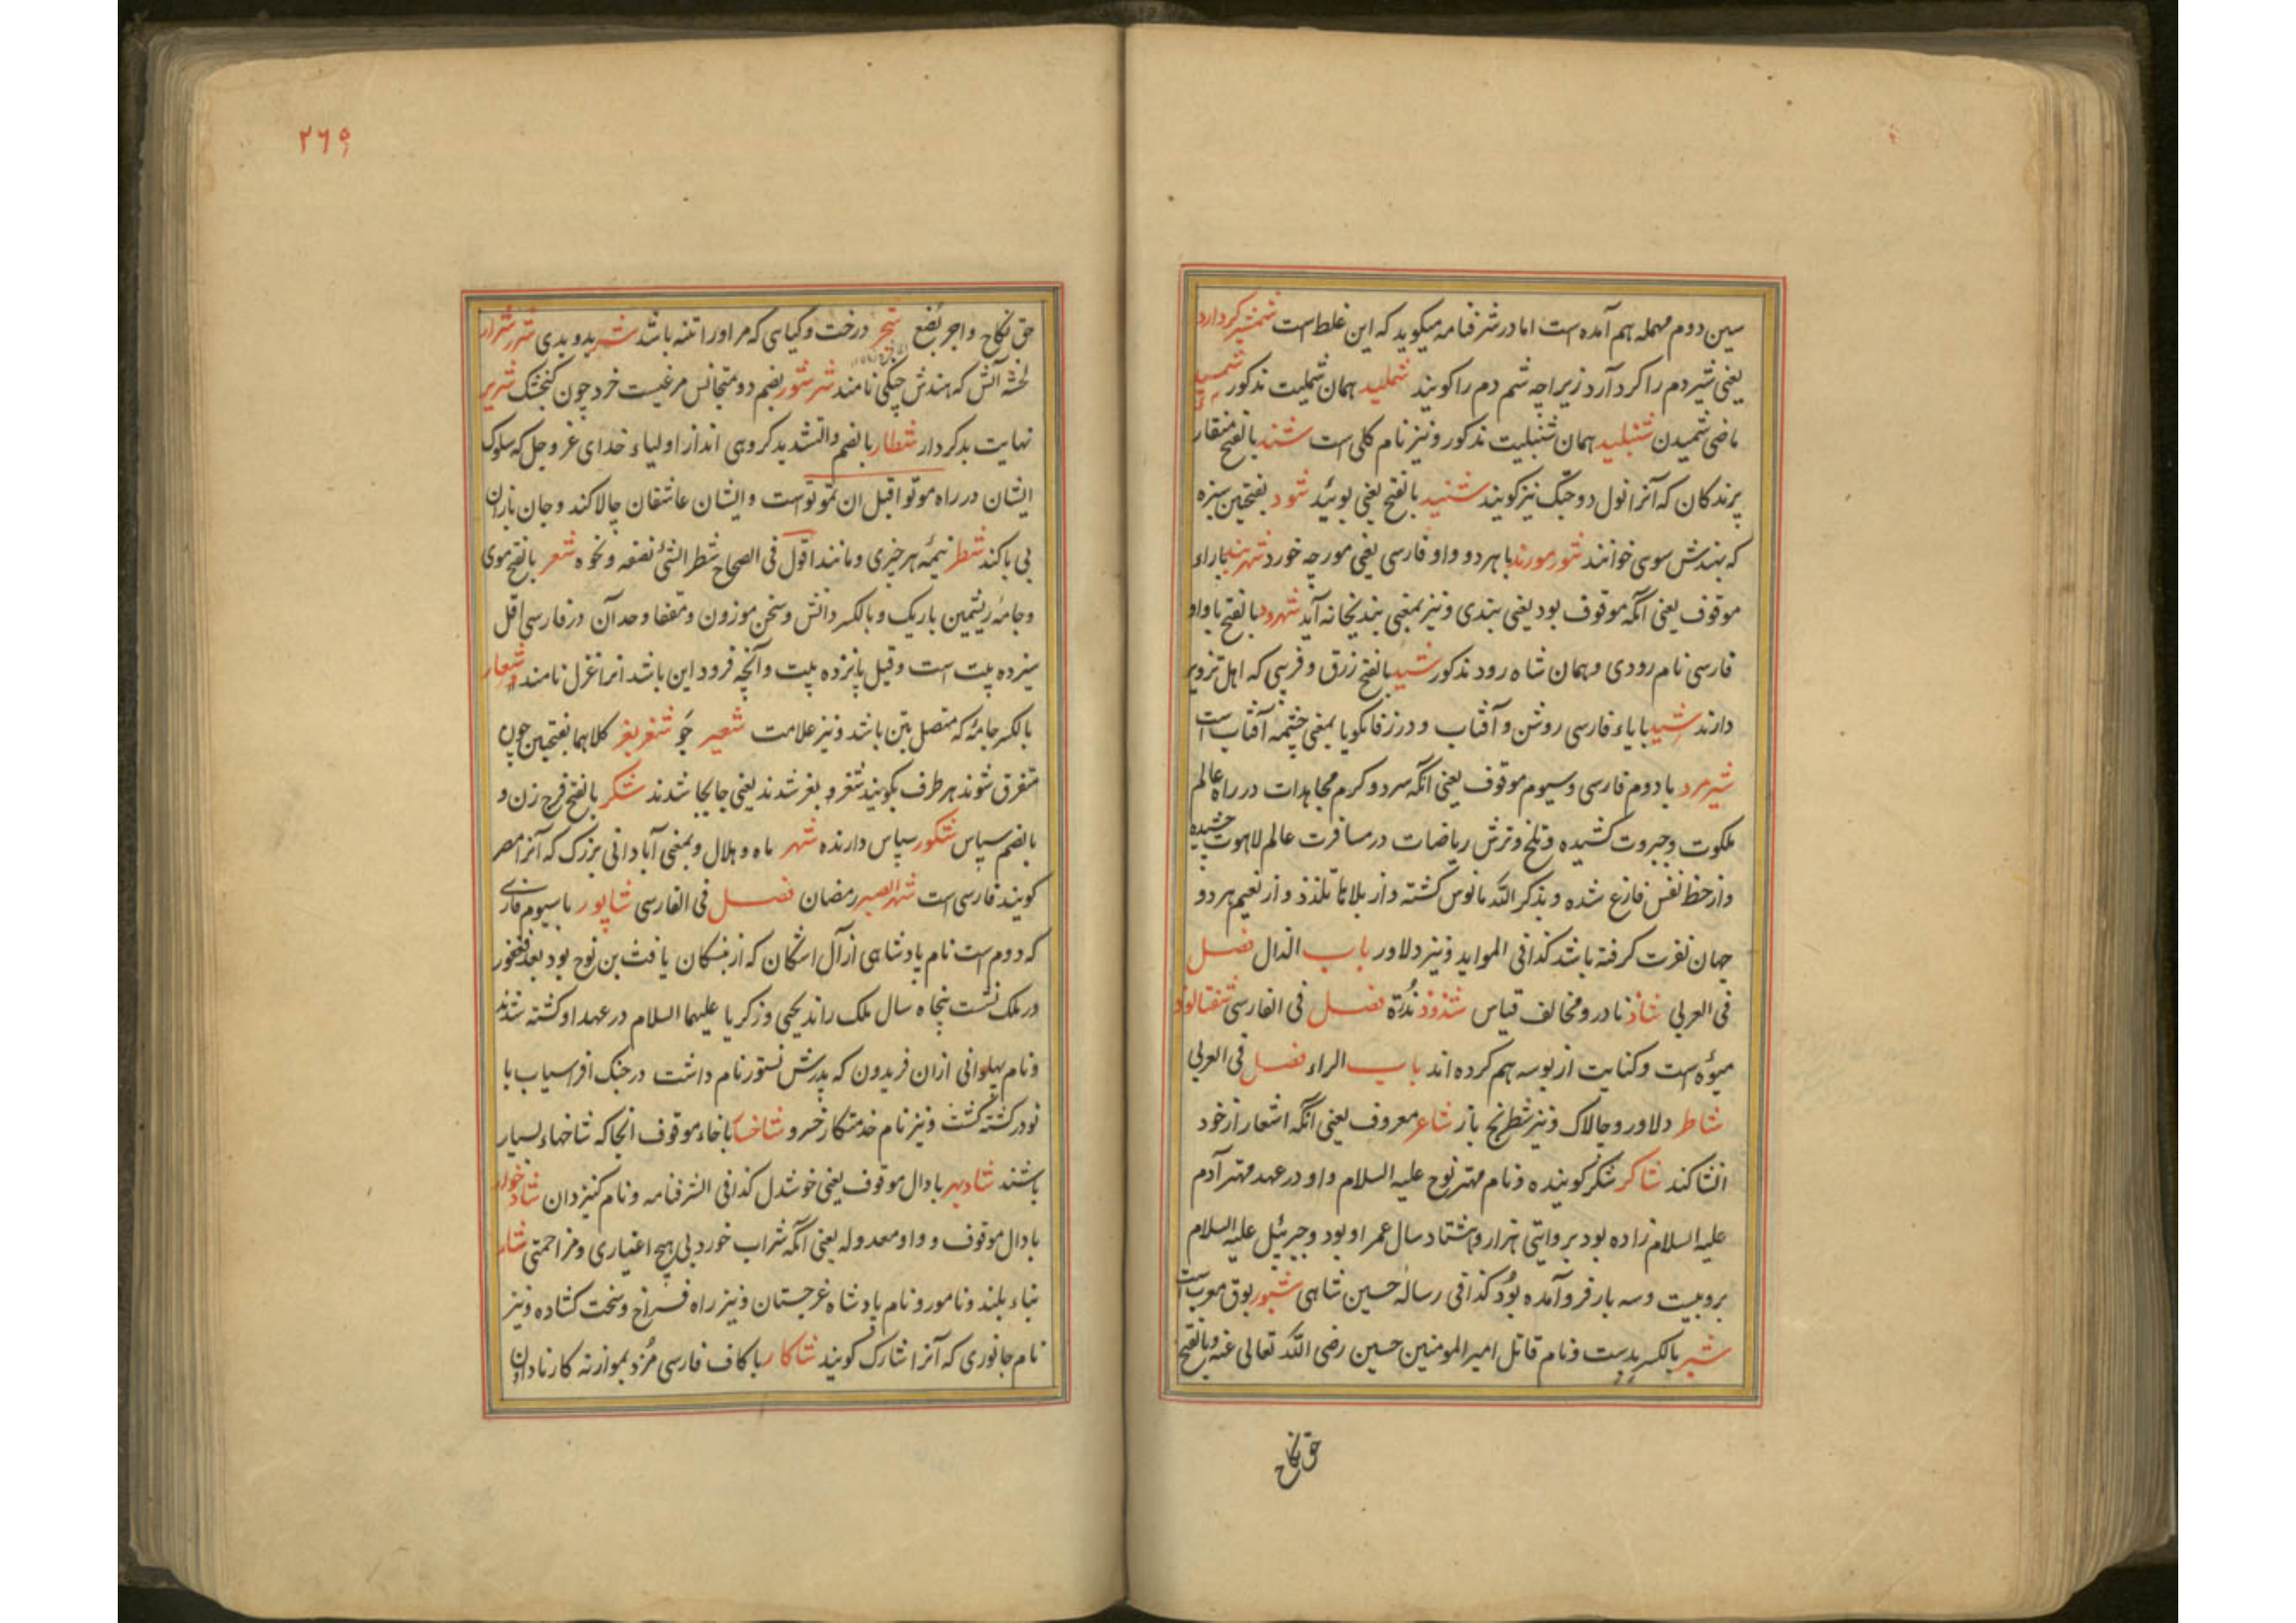 سین دوم مهمله هم آمده است اما در شرفنامه میگوید که این غلط است شمشیر کردارد
یعنی شیر دم را کرد آرد زیراچه شم دم را کویند شملید همان شملیت مذکور شمید
ماضی شمیدن شنبلید همان شنبلیت مذکور و نیز نام کلی است شند بالفتح منقار
پرندکان که آنرا نول و نیز کویند شنید بالفتح یعنی بوئید شود بفتحین سبزه
که بهندش سوی خوانند شورمورند با هر دو واو فارسی یعنی مورچه خورد شهربند باراء
موقوف یعنی آنکه موقوف بود یعنی بندی و نیز بمعنی بندیخانه آید شهرود بالفتح باواو
فارسی نام رودی و همان شاه رود مذکور شید بالفتح زرق و فریبی که اهل تزویر
دارند شید بایاء فارسی روشن و آفتاب و در زفانکویا بمعنی چشمه آفتاب است
شیرمرد با دوم فارسی و سیوم موقوف یعنی آنکه سرد و کرم مجاهدات در راه عالم
ملکوت و جبروت کشیده و تلخ و ترش ریاضات در مسافرت عالم لاهوت چشیده
و از حظ نفس فارغ شده و بذکر الله مانوس کشته و از بلاها تلذذ و از نعیم هر دو
جهان نفرت کرفته باشد کذا فی المواید و نیز دلاور باب الذال فصل
فی العربی شاذ نادر و مخالف قیاس شذوذ ندرة فصل فی الفارسی شفتالوذ
میوه است و کنایت از بوسه هم کرده اند باب الراء فصل فی العربی
شاطر دلاور و چالاک و نیز شطرنج باز شاعر معروف یعنی آنکه اشعار از خود
انشا کند شاکر شکر کوینده و نام مهتر نوح علیه السلام و او در عهد مهتر آدم
علیه السلام زاده بود بروایتی هزار و هشتاد سال عمر او بود و جبرئیل علیه السلام
برو بیست و سه بار فرو آمده بود کذا فی رساله حسین شاهی شبور بوق معرب است
شبر بالکسر بدست و نام قاتل امیر المومنین حسین رضی الله تعالی عنه و بالفتح
حق نکاح
۲۶۵
حق نکاح و اجر بضع شجر درخت و کیاهی که مر او را تنه باشد شر بد و بدی شرر شرار
لخشه آتش که بهندش چنکی نامند شرشور بضم دو متجانس مرغیست خرد چون کنجشک شریر
نهایت بدکردار شطار بالضم والتشدید کروهی اند از اولیاء خدای عز و جل که سلوک
ایشان در راه موتوا قبل ان تموتوا است و ایشان عاشقان چالاکند و جان بازان
بی باکند شطر نیمۀ هر چیزی و مانند اقول فی الصحاح شطر الشئ نصفه و نحوه شعر بالفتح موی
و جامۀ ریشمین باریک و بالکسر دانش و سخن موزون و مقفا و حد آن در فارسی اقل
سیزده بیت است و قیل پانزده بیت و آنچه فرود این باشد انرا غزل نامند شعار
بالکسر جامۀ که متصل بتن باشد و نیز علامت شعیر جو شغر بغر کلاهما بفتحین چون
متفرق شوند هر طرف بکویند شغر و بغر شدند یعنی جابجا شدند شکر بالفتح فرج زن و
بالضم سپاس شکور سپاس دارنده شهر ماه و هلال و بمعنی آبادانی بزرک که آنرا مصر
کویند فارسی است شهر الصبر رمضان فصل فی الفارسی شاپور با سیوم فارسی
که دوم است نام پادشاهی از آل اشکان که از یافث بن نوح بود بعد فغفور
در ملک نشست پنجاه سال ملک راند یحیی و زکریا علیهما السلام در عهد او کشته شدند
و نام پهلوانی ازان فریدون که پدرش نستور نام داشت در جنک افراسیاب با
نودر کشته کشت و نیز نام خدمتکار خسرو شاخسار با خاء موقوف انجا که شاخهاء بسیار
باشند شادبهر با دال موقوف یعنی خوشدل کذا فی الشرفنامه و نام کنیزدان شادخوار
با دال موقوف و واو معدوله یعنی آنکه شراب خورد بی هیچ اغیاری و مزاحمتی شار
بناء بلند و نامور و نام پادشاه غرجستان و نیز راه فراخ و سخت کشاده و نیز
نام جانوری که آنرا شارک کویند شاکار با کاف فارسی مزد بموازنه کار نادادن